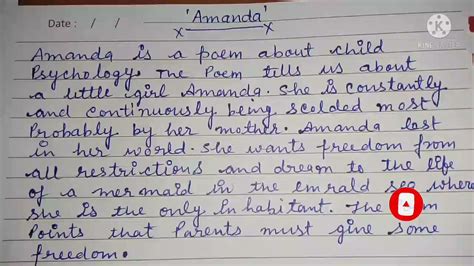 'Amanda'
Date : / /
x x
Amanda is a poem about child
Psychology. The Poem tells us about
a little girl Amanda. She is constantly
and continuously being scolded most
Probably by her mother. Amanda lost
in her world. She wants freedom from
all restrictions and dream to the life
of a mermaid in the emrald sea where
she is the only inhabitant. The
Points that Parents must give some
freedom.